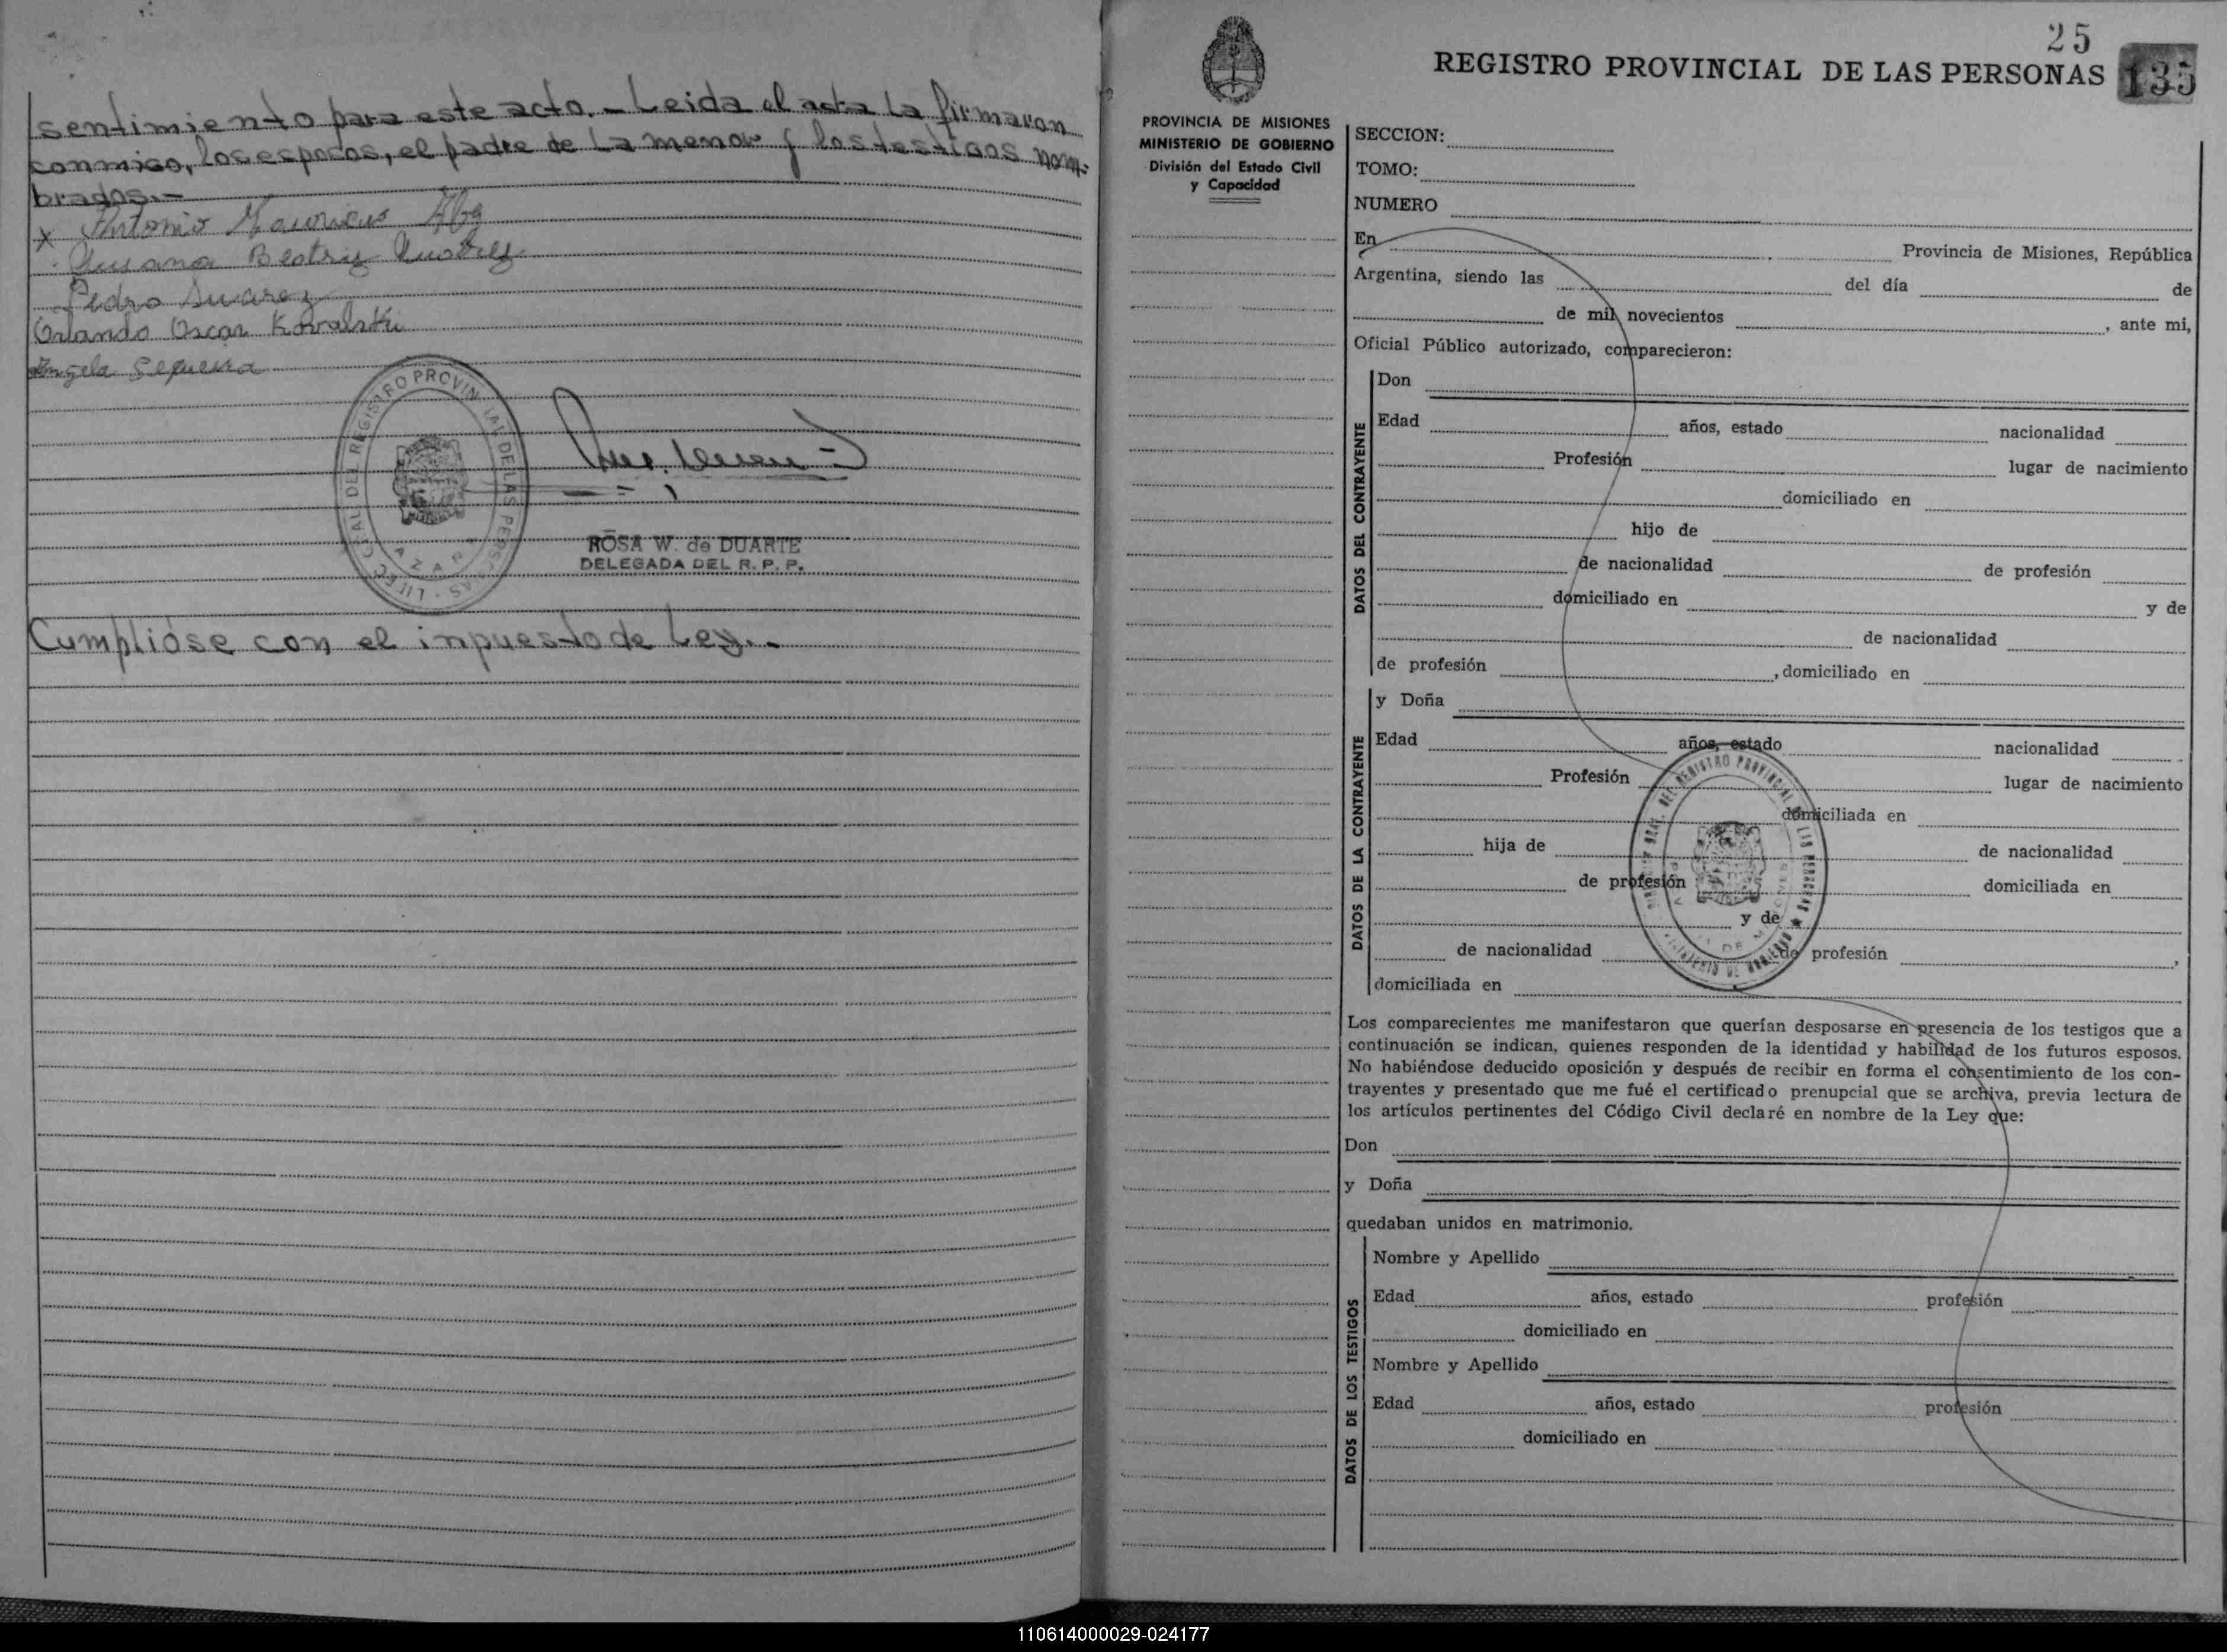 sentimiento para este acto. - Leida el acta La firmaron
conmigo, los esposos, el padre de La menor y los testigos nom-
brados.-
x Antonio Mauricio
Susana Beatriz Suarez
Pedro Suarez
Orlando Oscar Kovalski
Angela Sequeira
REGISTRO PROVINCIAL DE LAS PERSONAS
AZARA
ROSA W. de DUARTE
DELEGADA DEL R. P. P.
Cumplióse con el inpuesto de Ley.-
25
REGISTRO PROVINCIAL DE LAS PERSONAS
135
PROVINCIA DE MISIONES
MINISTERIO DE GOBIERNO
División del Estado Civil
y Capacidad
SECCION:
TOMO:
NUMERO
En Provincia de Misiones, República
Argentina, siendo las del día de
de mil novecientos , ante mi,
Oficial Público autorizado, comparecieron:
DATOS DEL CONTRAYENTE
Don
Edad años, estado nacionalidad
Profesión lugar de nacimiento
domiciliado en
hijo de
de nacionalidad de profesión
domiciliado en y de
de nacionalidad
de profesión , domiciliado en
DATOS DE LA CONTRAYENTE
y Doña
Edad años, estado nacionalidad
Profesión lugar de nacimiento
domiciliada en
hija de de nacionalidad
de profesión domiciliada en
y de
de nacionalidad de profesión ,
domiciliada en
Los comparecientes me manifestaron que querían desposarse en presencia de los testigos que a
continuación se indican, quienes responden de la identidad y habilidad de los futuros esposos.
No habiéndose deducido oposición y después de recibir en forma el consentimiento de los con-
trayentes y presentado que me fué el certificado prenupcial que se archiva, previa lectura de
los artículos pertinentes del Código Civil declaré en nombre de la Ley que:
Don
y Doña
quedaban unidos en matrimonio.
DATOS DE LOS TESTIGOS
Nombre y Apellido
Edad años, estado profesión
domiciliado en
Nombre y Apellido
Edad años, estado profesión
domiciliado en
110614000029-024177